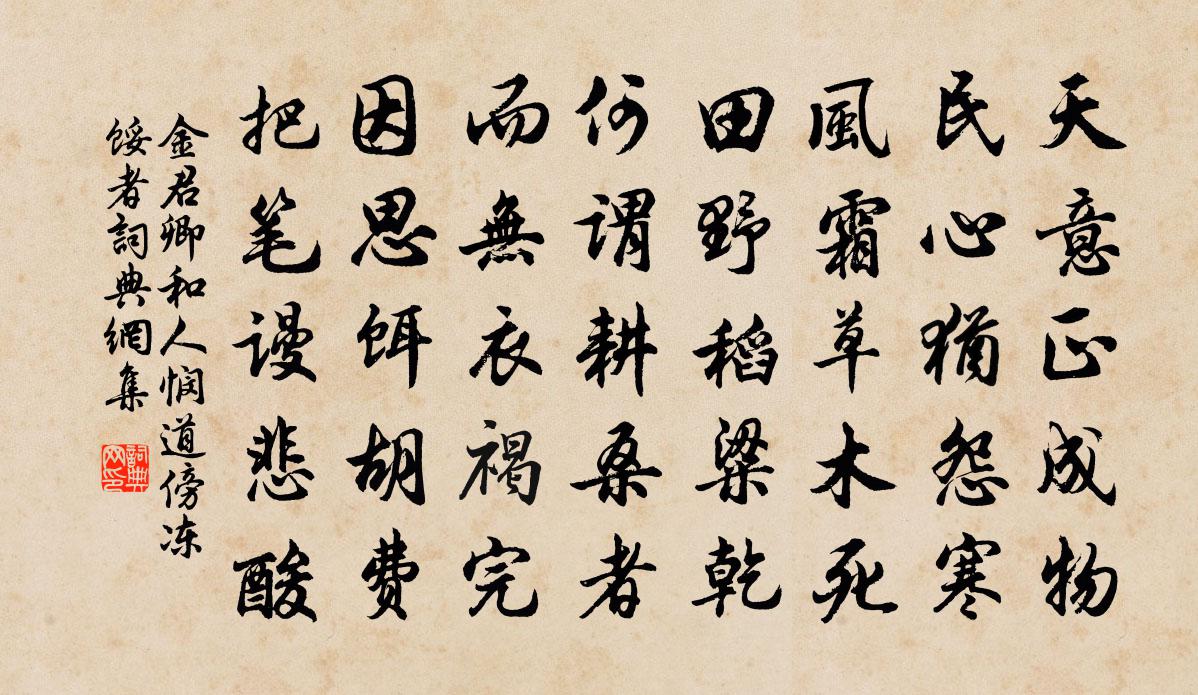 天意正成物
民心猶怨寒
風霜草木死
田野稻粱乾
何謂耕桑者
而無衣褐完
因思餌胡費
把笔謾悲酸
金君卿和人悯道傍冻
馁者詞典網集
詞典网印